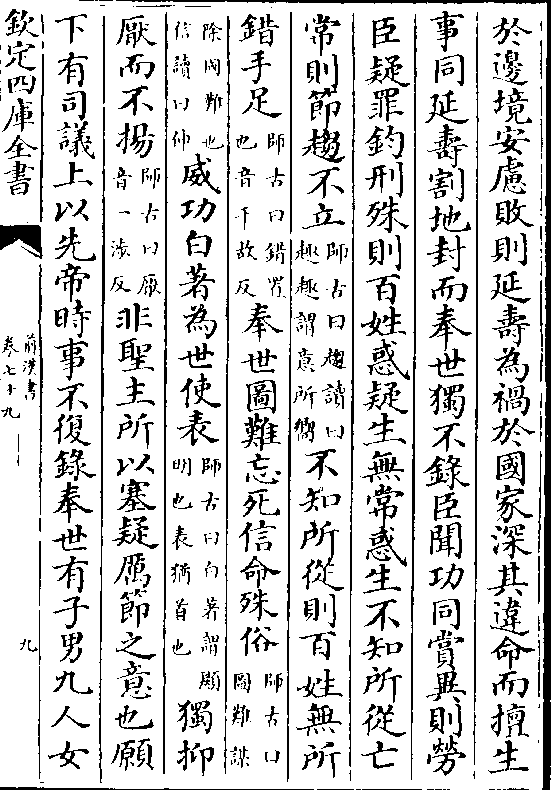 於邊境安慮敗則延壽為禍於國家深其違命而擅生
事同延壽割地封而奉世獨不錄臣聞功同賞異則勞
臣疑罪鈞刑殊則百姓惑疑生無常惑生不知所從亡
常則節趨不立師古曰趨讀曰趣趣謂意所嚮不知所從則百姓無所
錯手足師古曰錯置也音千故反奉世圖難忘死信命殊俗師古曰圖難謀
除國難也信讀曰伸威功白著為世使表師古曰白著謂顯明也表猶首也獨抑
厭而不揚師古曰厭音一涉反非聖主所以塞疑厲節之意也願
下有司議上以先帝時事不復錄奉世有子男九人女
欽定四庫全書
前漢書
卷七十九
九